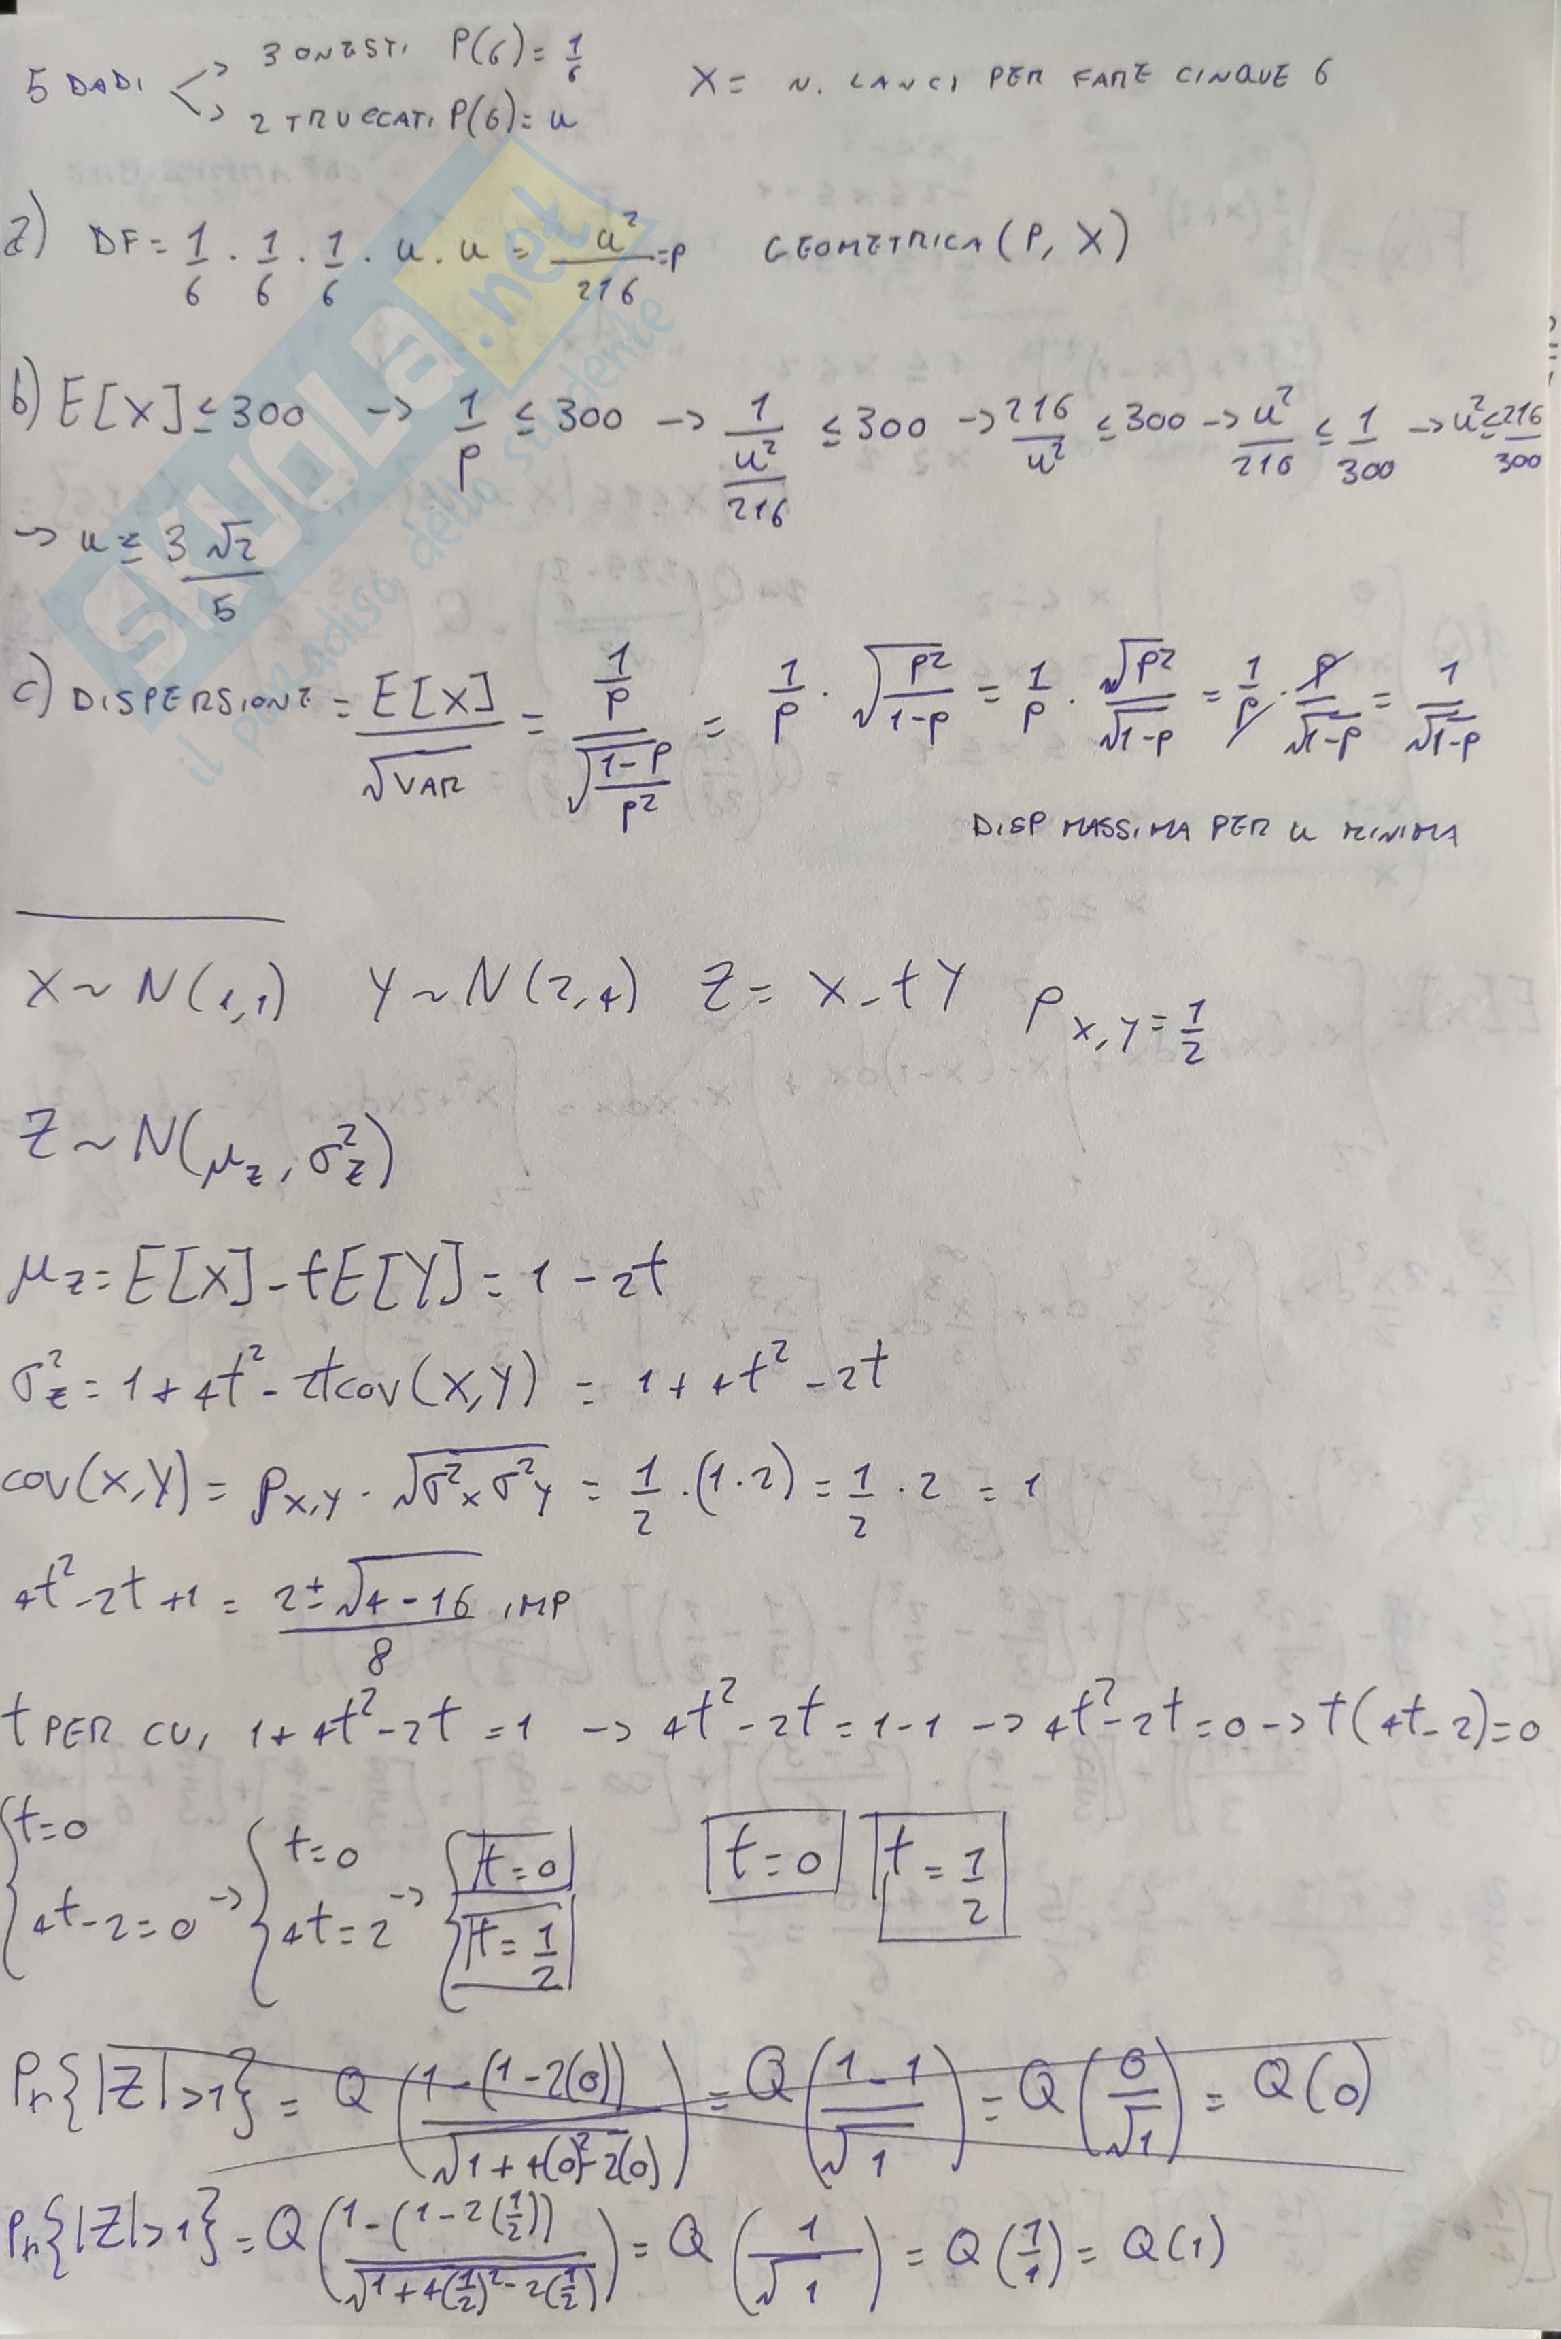 5 DADI → 3 ONESTI P(6) = 1/6
→ 2 TRUCCATI P(6) = u
X = N. LANCI PER FARE CINQUE 6
a) DF = 1/6 · 1/6 · 1/6 · u · u = u²/216 = P GEOMETRICA (P, X)
b) E[X] ≤ 300 → 1/P ≤ 300 → 1/(u²/216) ≤ 300 → 216/u² ≤ 300 → u²/216 ≤ 1/300 → u² ≤ 216/300
→ u ≥ 3√2/5
c) DISPERSIONE = E[X]/√VAR = (1/P)/√((1-P)/P²) = 1/P · √(P²/(1-P)) = 1/P · √P²/√(1-P) = 1/P · P/√(1-P) = 1/√(1-P)
DISP MASSIMA PER u MINIMA
X ~ N(1,1) Y ~ N(2,4) Z = X - tY ρ X,Y = 1/2
Z ~ N(μz, σ²z)
μz = E[X] - tE[Y] = 1 - 2t
σ²z = 1 + 4t² - 2tcov(X,Y) = 1 + 4t² - 2t
cov(X,Y) = ρX,Y · √(σ²X σ²Y) = 1/2 · (1·2) = 1/2 · 2 = 1
4t² - 2t + 1 = (2 ± √(4-16))/8 IMP
t PER CUI 1 + 4t² - 2t = 1 → 4t² - 2t = 1-1 → 4t² - 2t = 0 → t(4t-2) = 0
{t=0 → {t=0 → {t=0 t=0 t=1/2
{4t-2=0 {4t=2 {t=1/2
Pr{|Z|>1} = Q((1-(1-2(0)))/√(1+4(0)²-2(0))) = Q((1-1)/√1) = Q(0/√1) = Q(0)
Pr{|Z|>1} = Q((1-(1-2(1/2)))/√(1+4(1/2)²-2(1/2))) = Q(1/√1) = Q(1/1) = Q(1)
SKUOLA.net
il paradiso dello studente